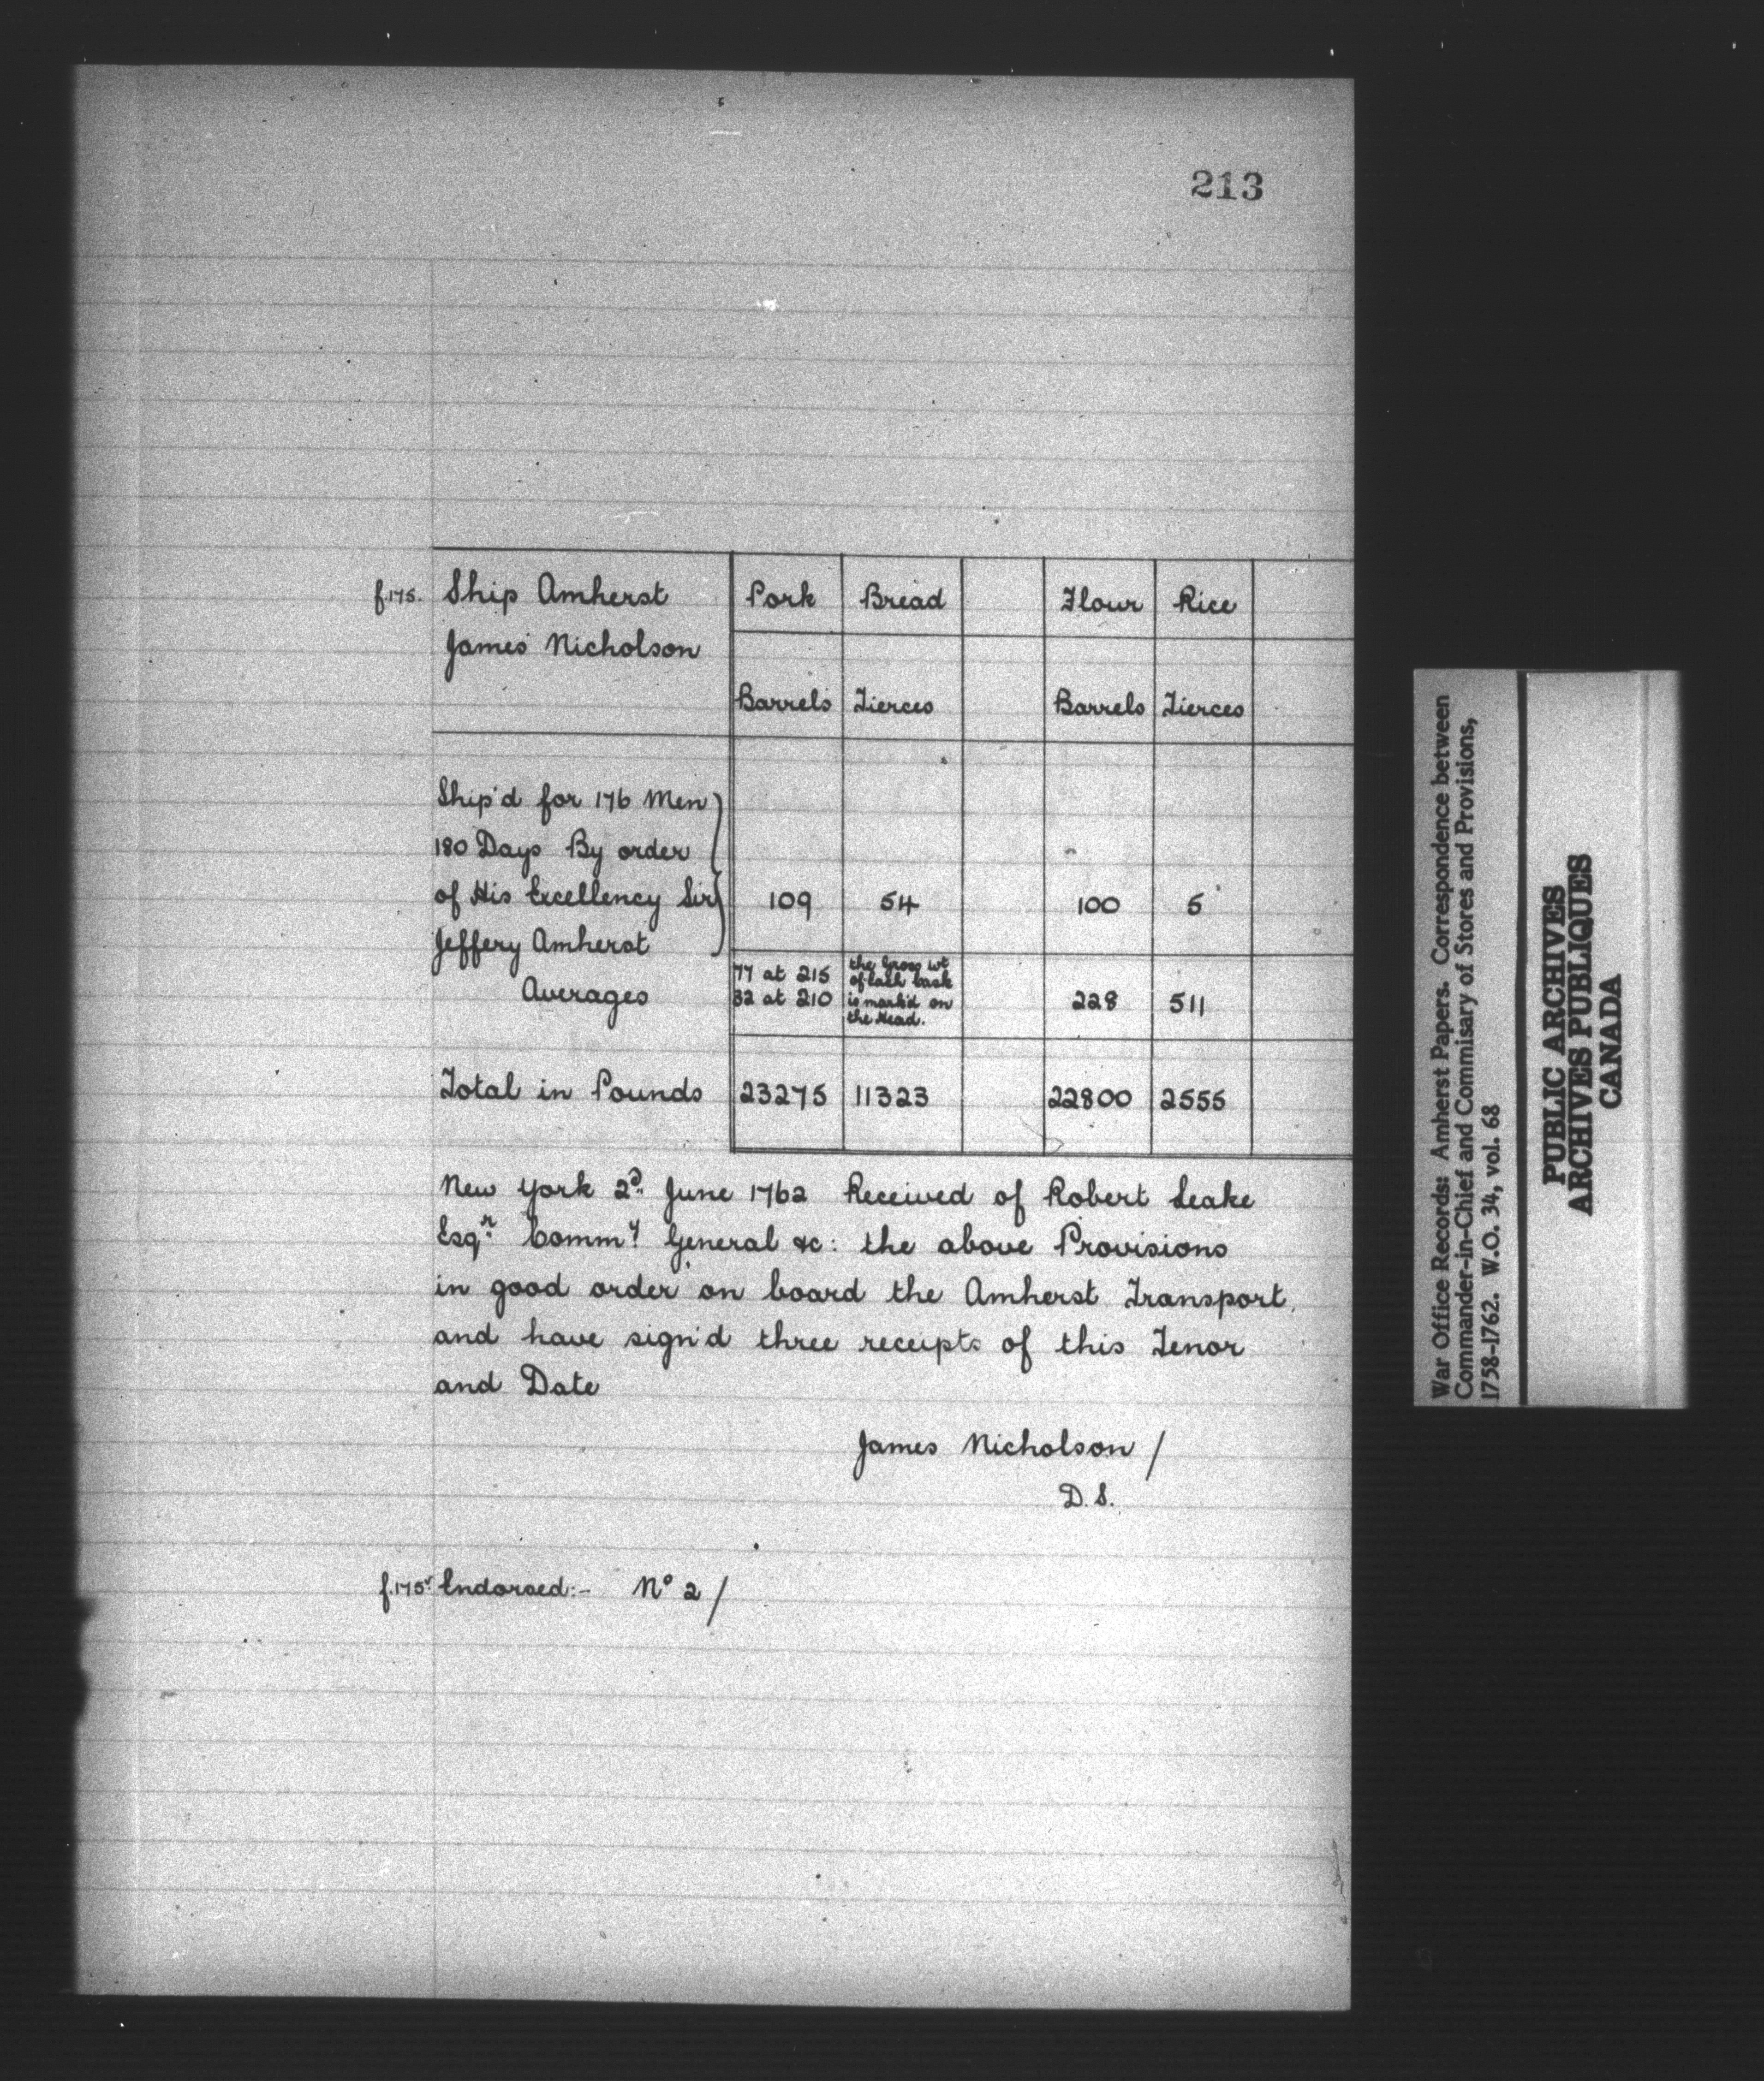 213
f.175. Ship Amherst Pork Bread Flour Rice
James Nicholson
Barrels Tierces Barrels Tierces
Ship'd for 176 Men
180 Days By order
of His Excellency Sir 109 54 100 5
Jeffery Amherst
Averages 77 at 215 the Gross wt 228 511
32 at 210 of Each Cask
is mark'd on
the Head.
Total in Pounds 23275 11323 22800 2555
New York 2d. June 1762 Received of Robert Leake
Esqr. Commy. General &c: the above Provisions
in good order on board the Amherst Transport.
and have sign'd three receipts of this Tenor
and Date
James Nicholson /
D. S.
f.175v Endorsed:- No 2 /
War Office Records: Amherst Papers. Correspondence between
Commander-in-Chief and Commisary of Stores and Provisions,
1758-1762. W.O. 34, vol. 68
PUBLIC ARCHIVES
ARCHIVES PUBLIQUES
CANADA